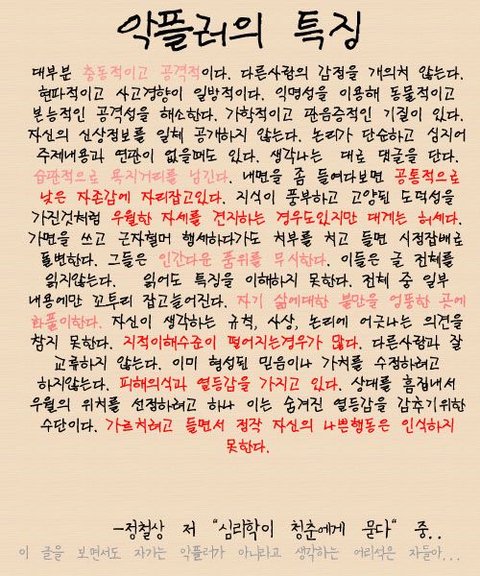 악플러의 특징
대부분 충동적이고 공격적이다. 다른사람의 감정을 개의치 않는다.
현파적이고 사고경향이 일방적이다. 익명성을 이용해 동물적이고
본능적인 공격성을 해소한다. 가학적이고 관음증적인 기질이 있다.
자신의 신상정보를 일체 공개하지 않는다. 논리가 단순하고 심지어
주제내용과 연관이 없을때도 있다. 생각나는 대로 댓글을 단다.
습관적으로 욕지거리를 남긴다. 내면을 좀 들여다보면 공통적으로
낮은 자존감에 자리잡고있다. 지식이 풍부하고 고양된 도덕성을
가진것처럼 우월한 자세를 견지하는 경우도있지만 대게는 허세다.
가면을 쓰고 근자혈머 행세하다가도 치부를 치고 들면 시정잡배로
돌변한다. 그들은 인간다운 품위를 무시한다. 이들은 글 전체를
읽지않는다. 읽어도 특징을 이해하지 못한다. 전체 중 일부
내용에만 꼬투리 잡고늘어진다. 자기 삶에대한 불만을 엉뚱한 곳에
화풀이한다. 자신이 생각하는 규칙, 사상, 논리에 어긋나는 의견을
참지 못한다. 지적이해수준이 떨어지는경우가 많다. 다른사람과 잘
교류하지 않는다. 이미 형성된 믿음이나 가치를 수정하려고
하지않는다. 피해의식과 열등감을 가지고 있다. 상대를 흠집내서
우월의 위치를 선점하려고 하나 이는 숨겨진 열등감을 감추기위한
수단이다. 가르쳐려고 들면서 정작 자신의 나쁜행동은 인식하지
못한다.
-정철상 저 "심리학이 청춘에게 묻다" 중..
이 글을 보면서도 자기는 악플러가 아니라고 생각하는 어리석은 자들아...